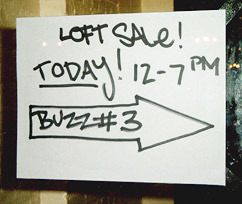 LOFT SALE!
TODAY! 12-7 PM
BUZZ#3